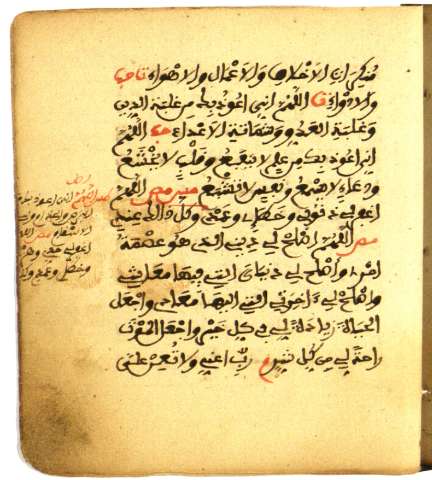 منكرات الاخلاق والاعمال والاهواء ت حب
والادواء ت اللهم اني اعوذ بك من غلبة الدين
وغلبة العدو وشماتة الاعداء حب اللهم
اني اعوذ بك من علم لا ينفع وقلب لا يخشع
ودعاء لا يسمع ونفس لا تشبع مس مص اللهم
اغفر لي ذنوبي وخطئي وعمدي وكل ذلك عندي
مص اللهم اصلح لي ديني الذي هو عصمة
امري واصلح لي دنياي التي فيها معاشي
واصلح لي ءاخرتي التي اليها معادي واجعل
الحياة زيادة لي في كل خير واجعل الموت
راحة لي من كل شر م رب اعني ولا تعن علي
اللهم اني اعوذ بك
اغفر لي